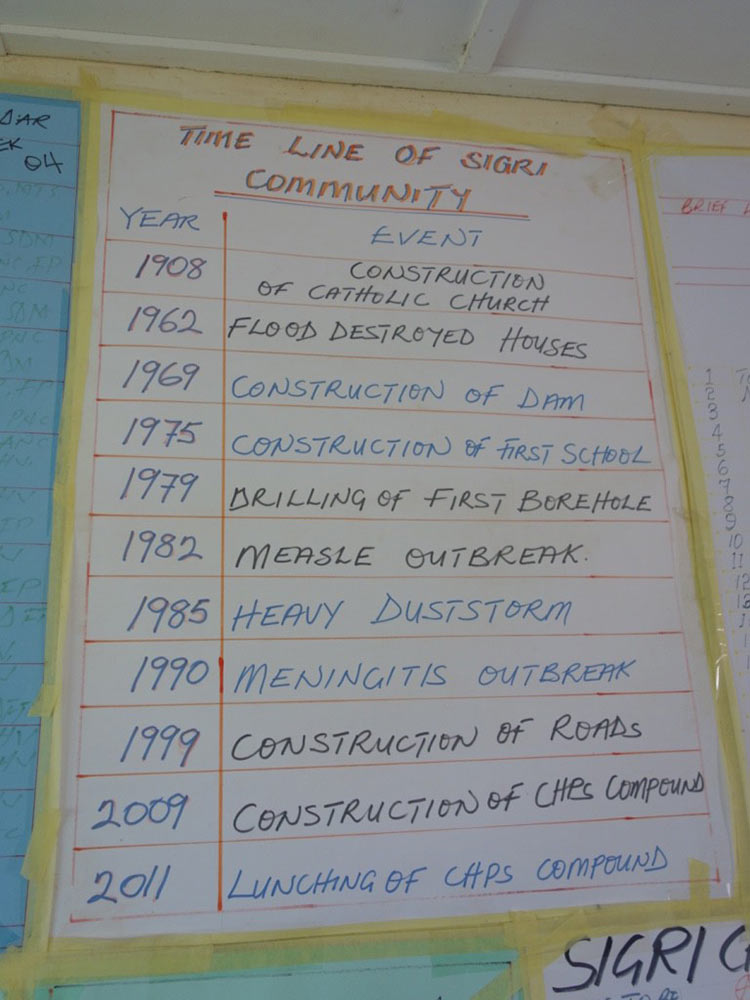 TIME LINE OF SIGRI
COMMUNITY
YEAR EVENT
1908 CONSTRUCTION
OF CATHOLIC CHURCH
1962 FLOOD DESTROYED HOUSES
1969 CONSTRUCTION OF DAM
1975 CONSTRUCTION OF FIRST SCHOOL
1979 DRILLING OF FIRST BOREHOLE
1982 MEASLE OUTBREAK.
1985 HEAVY DUSTSTORM
1990 MENINGITIS OUTBREAK
1999 CONSTRUCTION OF ROADS
2009 CONSTRUCTION OF CHPS COMPOUND
2011 LUNCHING OF CHPS COMPOUND
04
SDM
SDM
BRIEF
1
2
3
4
5
6
7
8
9
10
11
12
13
SIGRI